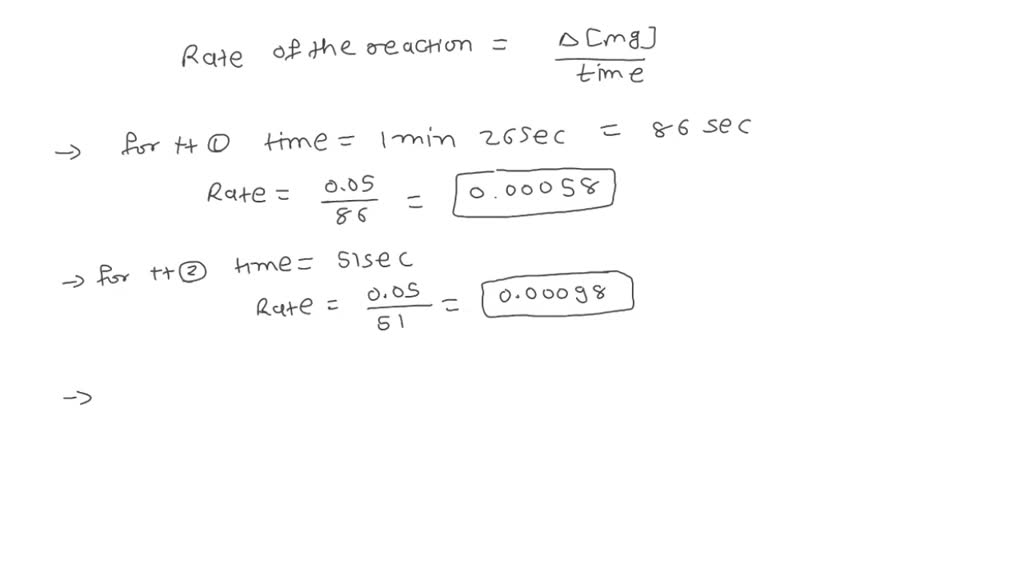 Rate of the reaction = Δ[mg] / time
→ for tt ① time = 1 min 26 sec = 86 sec
Rate = 0.05 / 86 = 0.00058
→ for tt ② time = 51 sec
Rate = 0.05 / 51 = 0.00098
→